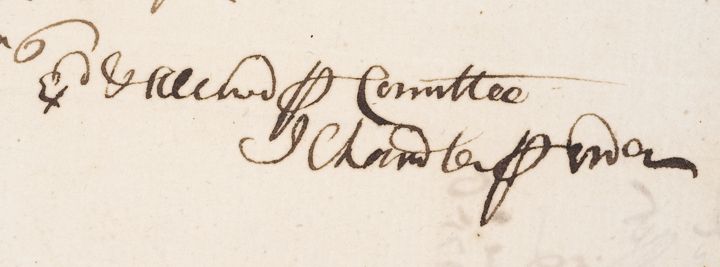 Exd & Allowd ⅌ Comittee
J Chandler ⅌ order